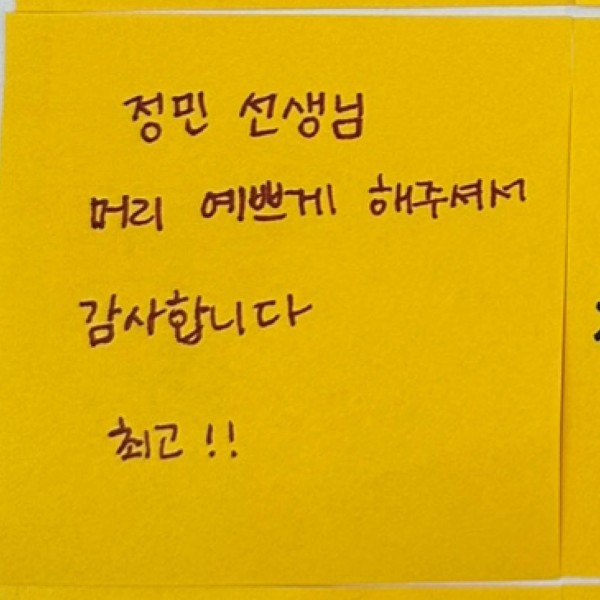 정민 선생님
머리 예쁘게 해주셔서
감사합니다
최고!!